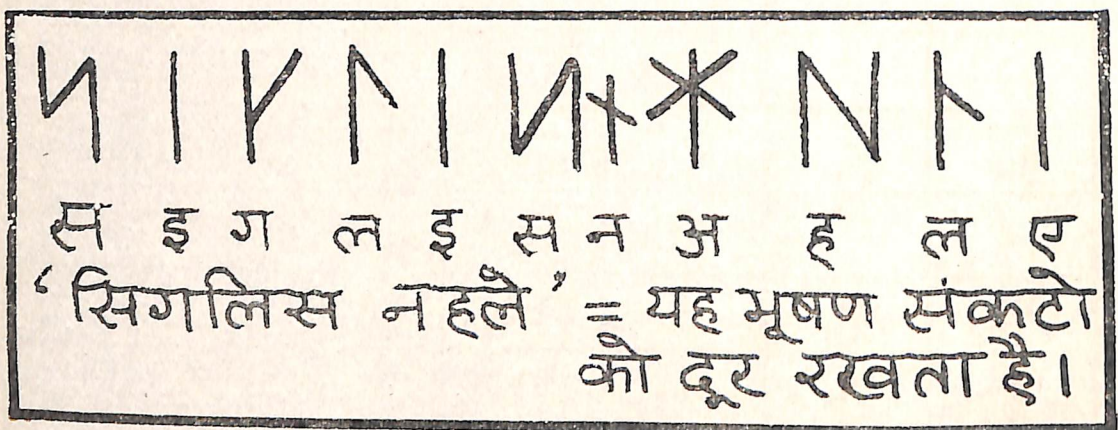 ᛋ ᛁ ᚴ ᛚ ᛁ ᛋ ᚾ ᚼ ᚺ ᛚ ᛁ
स इ ग ल इ स न अ ह ल ए
‘सिगलिस नहले’ = यह भूषण संकटो
को दूर रखता है।